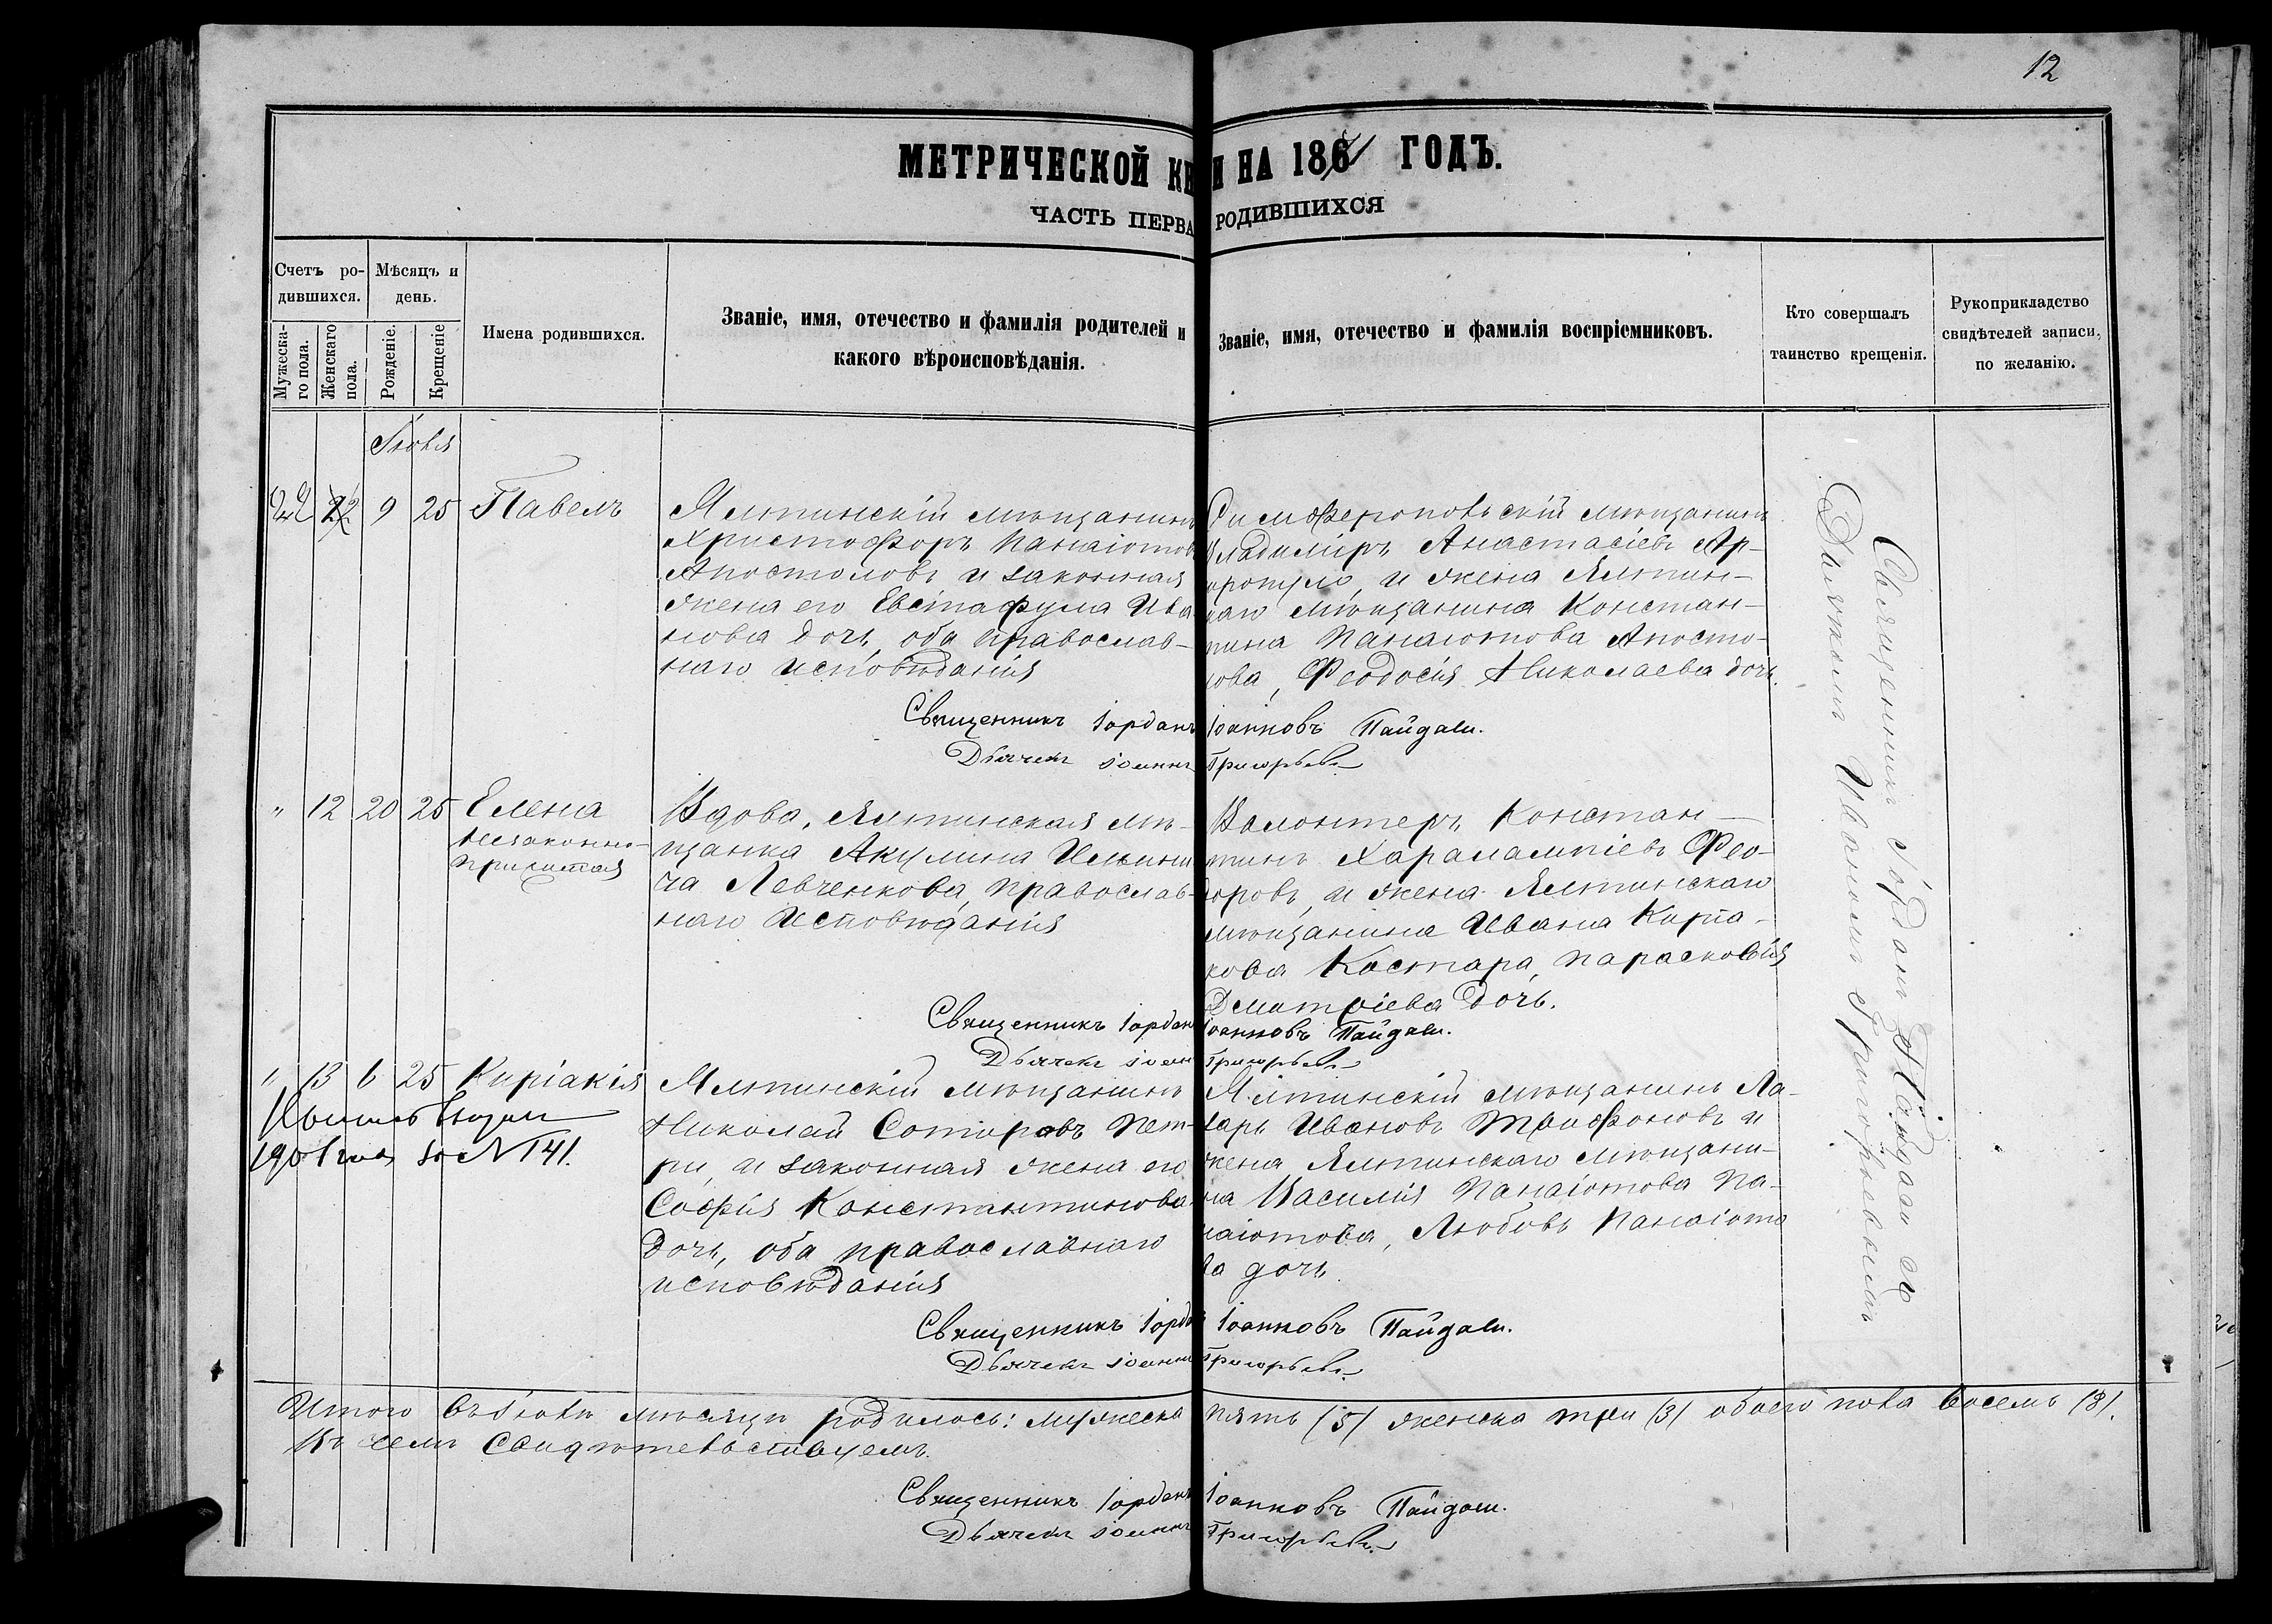 12
МЕТРИЧЕСКОЙ КН И НА 1861 ГОДЪ.
ЧАСТЬ ПЕРВА РОДИВШИХСЯ
Счетъ ро-
дившихся.
Мужеска-
го пола.
Женскаго
пола.
Мѣсяцъ и
день.
Рожденіе.
Крещеніе
Имена родившихся.
Званіе, имя, отечество и фамилія родителей и
какого вѣроисповѣданія.
Званіе, имя, отечество и фамилія воспріемниковъ.
Кто совершалъ
таинство крещенія.
Рукоприкладство
свидѣтелей записи,
по желанію.
9 25 Павелъ
Ялтинскій мѣщанинъ
Христофоръ Панаіотов
Апостоловъ и законная
жена его Ива
нова дочь, оба православ-
наго исповѣданія
Симферопольскій мѣщанинъ
Владиміръ Анастасіевъ Ар-
ропуло, и жена Ялтин-
каго мѣщанина Констан-
тина Панаіотова Аносто-
лова, Феодосія Николаева дочь.
Священникъ Іорданъ Іоанновъ Пайдаш.
Дьячекъ Іоаннъ Григорьевъ
" 12 20 25 Елена
незаконно-
прижитая
Вдова, Ялтинская мѣ-
щанка Акулина Ильини
ча Левченкова, православ-
наго исповѣданія
Волонтеръ Констан-
тинъ Харалампіевъ Фео-
доровъ, и жена Ялтинскаго
мѣщанина Ивана Кирια-
кова Костара, Парасковія
Дмитріева дочь.
Священникъ Іордан Іоанновъ Пайдаш.
Дьячекъ Іоан Григорьевъ
" 13 6 25 Киріакія
1901 года за № 141.
Ялтинскій мѣщанинъ
Николай Сотировъ Пет-
ри, и законная жена его
Софія Константинова
дочь, оба православнаго
исповѣданія
Ялтинскій мѣщанинъ Ла-
зарь Ивановъ Трифоновъ и
жена Ялтинскаго мѣщани-
на Василія Панаіотова Па-
наіотова, Любовь Панаіото
ва дочь.
Священникъ Іорда Іоанновъ Пайдаш.
Дьячекъ Іоаннъ Григорьевъ
Священникъ Іорданъ Пайдаш съ
Дьячкомъ Иваномъ Григорьевымъ
Итого въ мѣсяцѣ родилось: мужеска пять (5) женска три (3) обоего пола восемь (8).
Въ чемъ свидѣтельствуемъ.
Священникъ Іорданъ Іоанновъ Пайдаш.
Дьячекъ Іоаннъ Григорьевъ